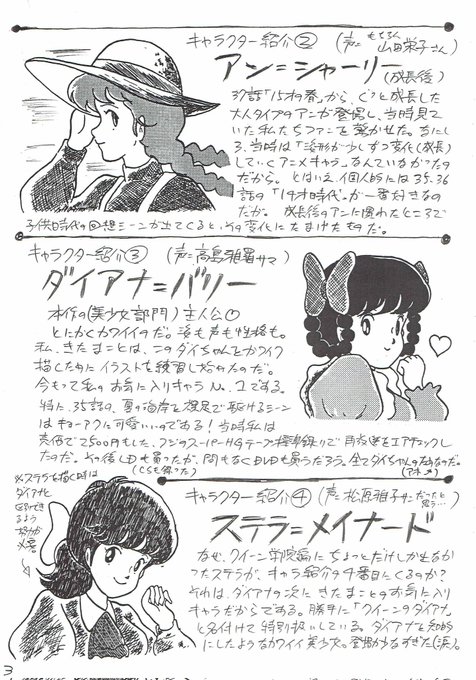 キャラクター紹介② (声=もちろん 山田栄子さん)
アン=シャーリー (成長後)
37話「15才の春」から、ぐっと成長した
大人タイプのアンが登場し、当時見て
いた私たちファンを驚かせた。なにし
ろ、当時は「姿形が少しずつ変化(成長)
していくアニメキャラ」なんていなかったの
だから。とはいえ、個人的には35、36
話の「14才時代」が一番好きなの
だが。成長後のアンに慣れたところで
子供時代の回想シーンが出てくると、その変化にたまげたものだ。
キャラクター紹介③ (声=高島雅羅サマ)
ダイアナ=バリー
本作の(美少女部門)主人公
とにかくカワイイのだ。姿も声も性格も。
私、きたまことは、このダイちゃんをカワイク
描くためにイラストを練習し始めたのだ。
今もって私のお気に入りキャラNo.1である。
特に、35話の、夏の海岸を裸足で駆けるシーン
はキョーアクに可愛いいのである!当時私は
売価で2500円もした、フジのスーパーHGテープ標準録りで再放送をエアチェックし
たのだ。その後LDも買ったが、間もなくDVDも買うだろう。全てダイちゃんのためなのだ。
(CSも録った)
(アホメ)
※ステラを描く時は
ダイアナと
区別できる
よう
努力が
必要
キャラクター紹介④ (声=松原雅子サンだったと思う…)
ステラ=メイナード
なぜ、クイーン学院編にちょっとだけしか出なか
ったステラが、キャラ紹介の4番目にくるのか?
それは、ダイアナの次にきたまことのお気に入り
キャラだからである。勝手に「クイーンのダイアナ」
と名付けて特別扱いしている。ダイアナを知的
にしたようなカワイイ美少女。登場少なすぎた(涙)。
3